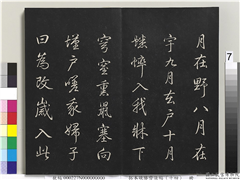 月在野八月在
宇九月在戶十月
蟋蟀入我牀下
穹窒熏鼠塞向
墐戶嗟我婦子
曰為改歲入此
7